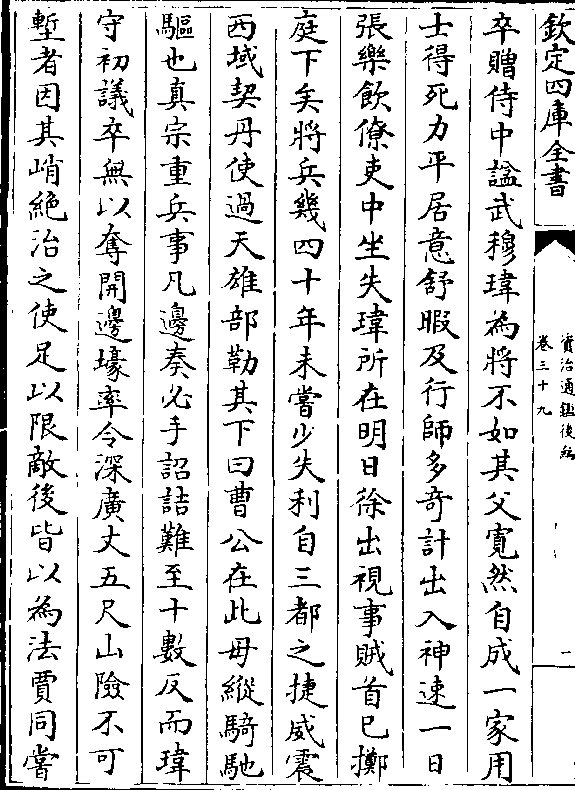 欽定四庫全書
資治通鑑後編
卷三十九
一
卒贈侍中諡武穆瑋為將不如其父寛然自成一家用
士得死力平居意舒暇及行師多奇計出入神速一日
張樂飲僚吏中坐失瑋所在明日徐出視事賊首已擲
庭下矣將兵幾四十年未嘗少失利自三都之捷威震
西域契丹使過天雄部勒其下曰曹公在此毋縱騎馳
驅也真宗重兵事凡邊奏必手詔詰難至十數反而瑋
守初議卒無以奪開邊壕率令深廣丈五尺山險不可
塹者因其峭絶治之使足以限敵後皆以為法賈同嘗